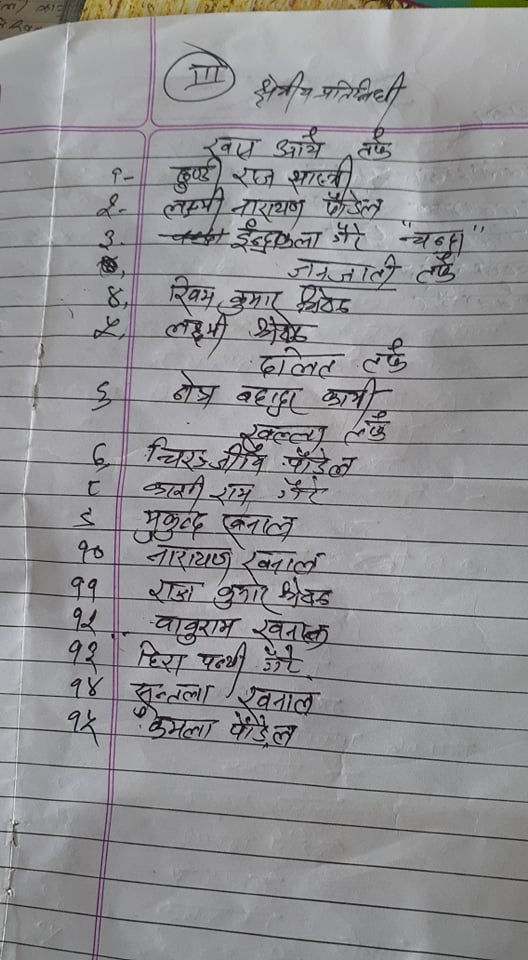 III क्षेत्रीय प्रतिनिधी
खस आर्य तर्फ
१- ढुण्डी राज शास्त्री
२- लक्ष्मी नारायण पौडेल
३. ईन्द्रकला जैरे "चन्दा"
जनजाती तर्फ
४, शिवम कुमार श्रेष्ठ
५, लक्ष्मी श्रेष्ठ
दलित तर्फ
६ नेत्र बहादुर कामी
खुल्ला तर्फ
७ चिरञ्जीवि पौडेल
८ काशी राम जैरे
९ मुकुन्द खनाल
१० नारायण खनाल
११ राज कुमार श्रेष्ठ
१२ बाबुराम खनाल
१३ हिरा पन्थी जैरे
१४ सुन्तला खनाल
१५ कमला पौडेल